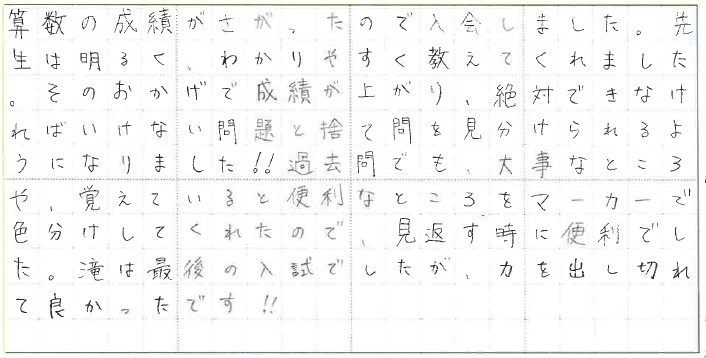 算数の成績がさがったので入会しました。先
生は明るく、わかりやすく教えてくれました
。そのおかげで成績が上がり、絶対できなけ
ればいけない問題と捨て問を見分けられるよ
うになりました!!過去問でも、大事なところ
や、覚えていると便利なところをマーカーで
色分けしてくれたので、見返す時に便利でし
た。滝は最後の入試でしたが、力を出し切れ
て良かったです!!